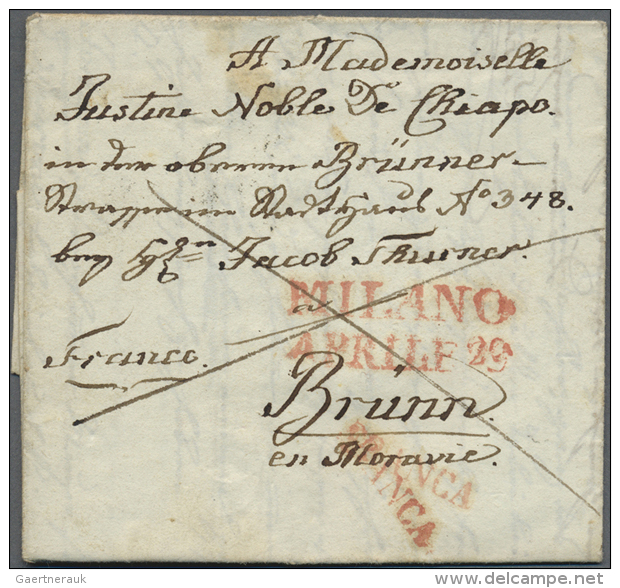 A Mademoiselle
Justine Noble De Chiapo.
in der oberen Brünner-
Strasse im Stadthaus No 348.
bey Jacob Thurner.
MILANO
a
APRILE 29
Franco.
Brünn.
en Moravie.
FRANCA
FRANCA
Gaertnerauk
delcampe.net